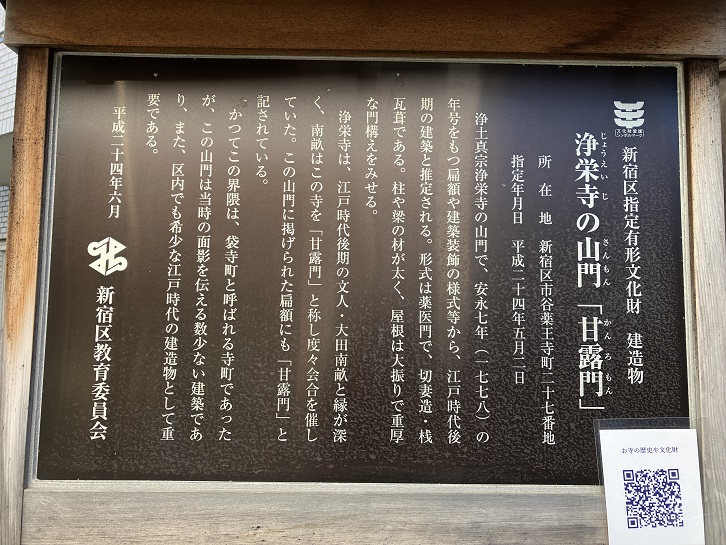 文化財愛護
シンボルマーク
新宿区指定有形文化財　建造物
じょうえいじ　さんもん　かんろもん
浄栄寺の山門「甘露門」
所在地　新宿区市谷薬王寺町二十七番地
指定年月日　平成二十四年五月二日
浄土真宗浄栄寺の山門で、安永七年（一七七八）の
年号をもつ扁額や建築装飾の様式等から、江戸時代後
期の建築と推定される。形式は薬医門で、切妻造・桟
瓦葺である。柱や梁の材が太く、屋根は大振りで重厚
な門構えをみせる。
浄栄寺は、江戸時代後期の文人・大田南畝と縁が深
く、南畝はこの寺を「甘露門」と称し度々会合を催し
ていた。この山門に掲げられた扁額にも「甘露門」と
記されている。
かつてこの界隈は、袋寺町と呼ばれる寺町であった
が、この山門は当時の面影を伝える数少ない建築であ
り、また、区内でも希少な江戸時代の建造物として重
要である。
平成二十四年六月
新宿区教育委員会
お寺の歴史や文化財